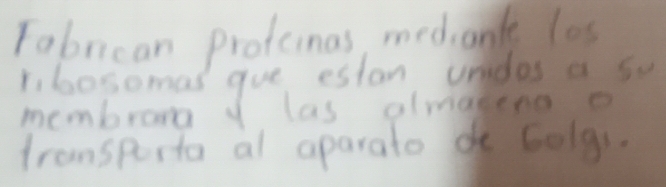 Fabrican proteinas mediante los
ribosomas que estan unidos a su
membrana y las almacena o
transporta al aparato de Golgi.